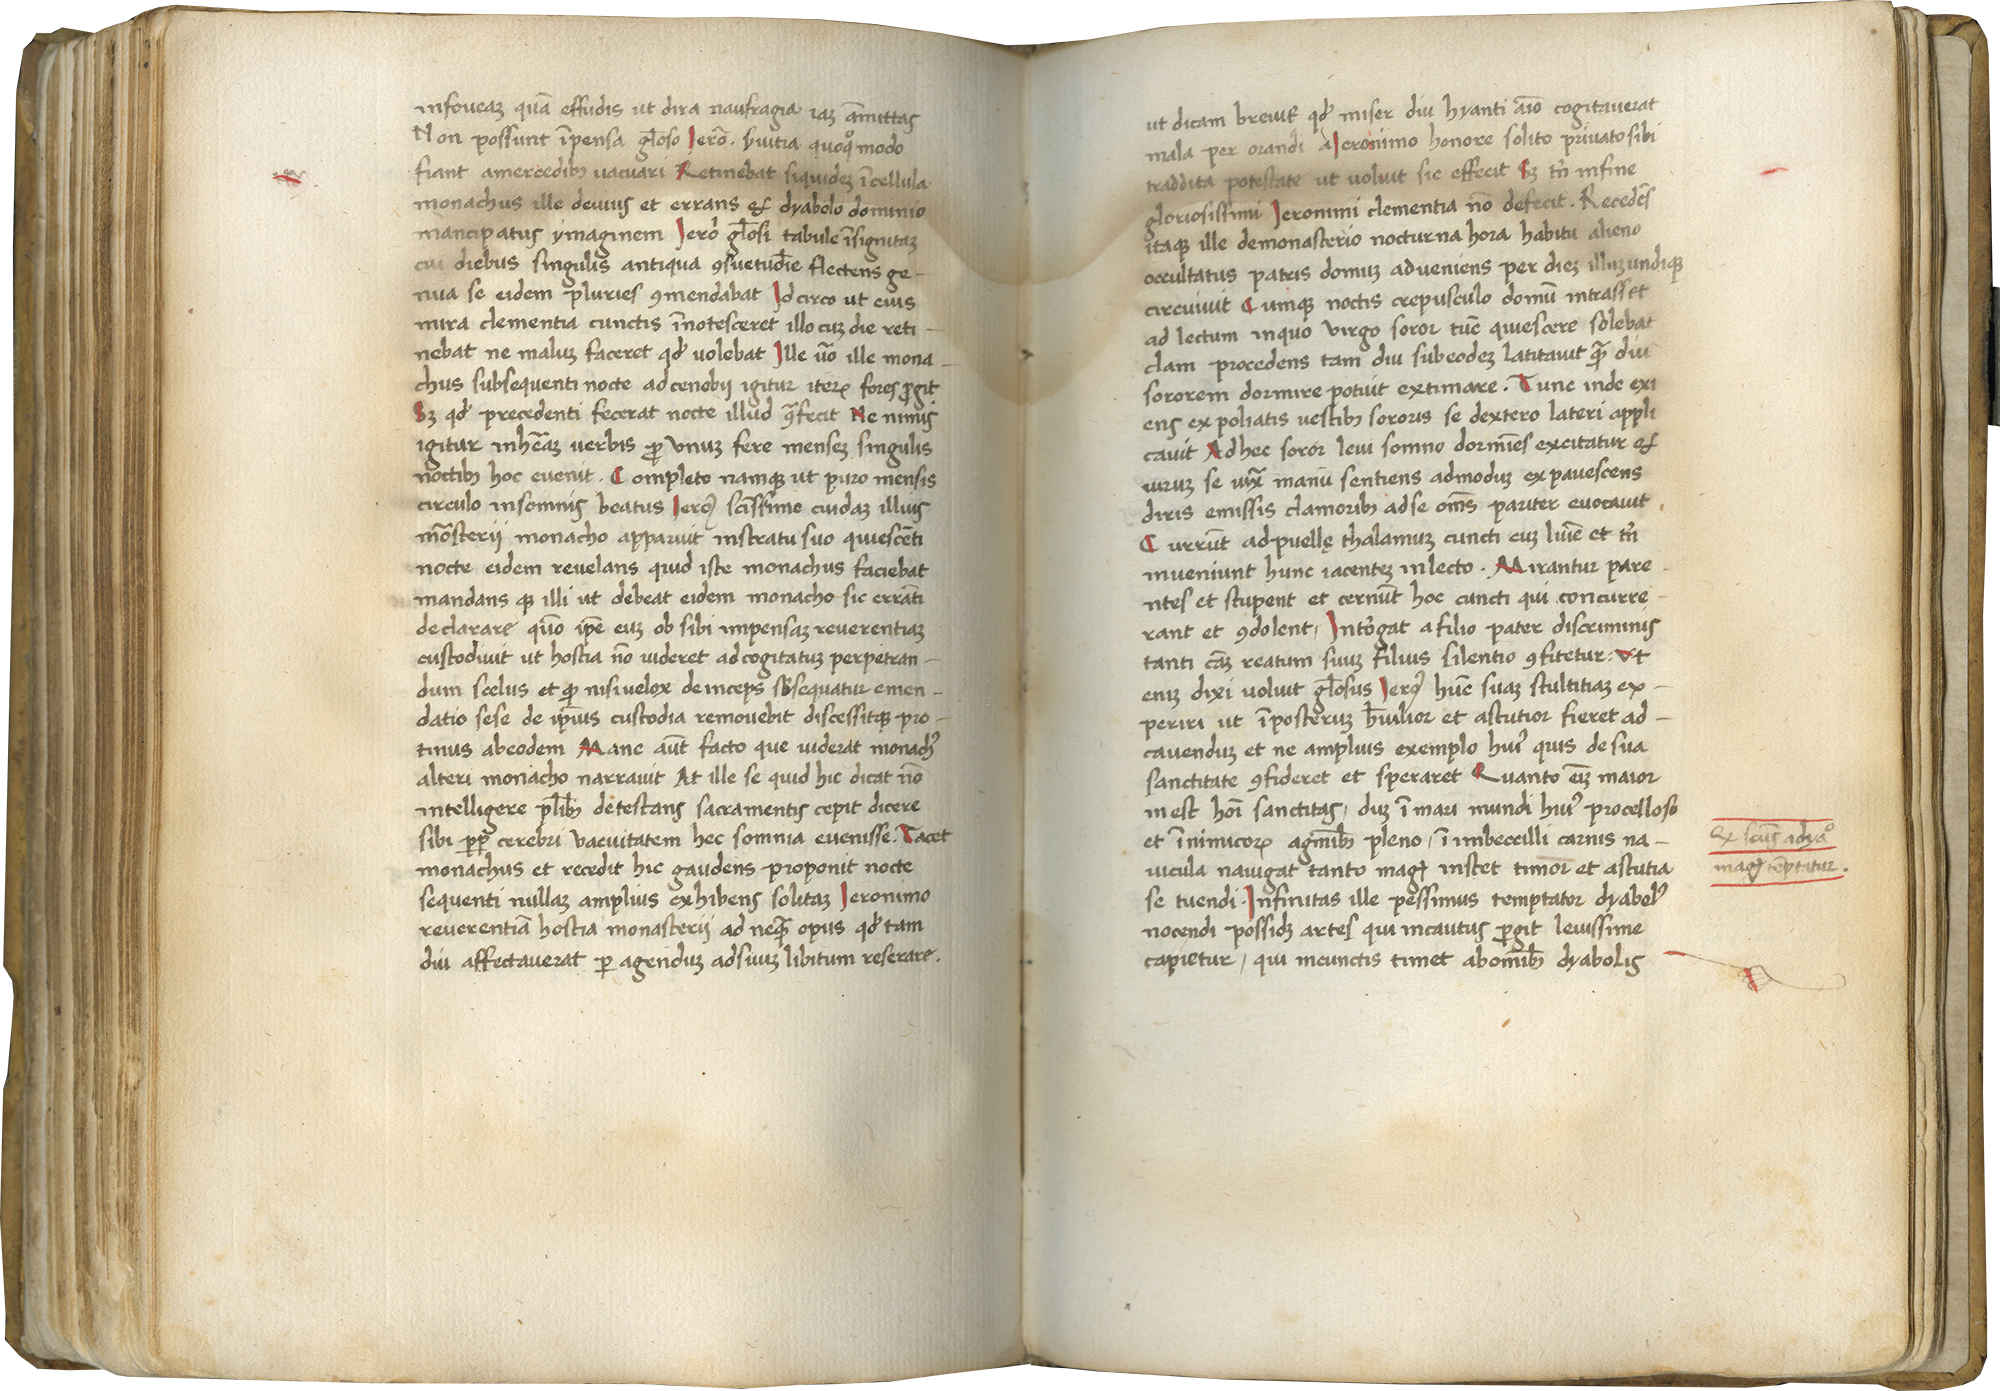 infoueaʒ quā effudis ut dira naufragia iaʒ āmittas
Non possunt īpensa gl̄oso Jerō. Seruitia quoq̊modo
fiant amercedibꝫ vacuari Retinebat siquideʒ īcellula
monachus ille deuius et errans & dyabolo dominio
mancipatus ymaginem Jero᷒ gl̄osi tabule īsignitaʒ
cui diebus singulis antiqua ꝯsuetudīe flectens ge-
nua se eidem pluries ꝯmendabat Jdcirco ut eius
mira clementia cunctis īnotesceret illo cuʒ die reti-
nebat ne maluʒ faceret qd᷒ uolebat Jlle ūo ille mona-
chus subsequenti nocte adcenobij igitur iteꝝ fores ꝑgit
Sʒ qd᷒ precedenti fecerat nocte illud q̄fecit Ne nimis
igitur inhēaʒ uerbis ꝑ vnuʒ fere menseʒ singulis
noctibꝫ hoc euenit. Completo namqꝫ ut puro mensis
circulo insomnis beatus Jeroꝰ scīssimo cuidaʒ illius
mōsterii monacho appariut instratu suo quiescēti
nocte eidem reuelans quid iste monachus faciebat
mandans qꝫ illi ut debeat eidem monacho sic errāti
declarare quō ip̄e euʒ ob sibi impensaʒ reuerentiaʒ
custodiuit ut hostia nō uideret adcogitatuʒ perpetran-
dum scelus et qꝫ nisi uelox deinceps sƀsequatur emen-
datio sese de ip̄ius custodia remouebit discessitqꝫ pro-
tinus abeodem Mane aūt facto que uiderat monachꝰ
alteri monacho narrauit At ille se quid hic dicat nō
intelligere pl̄ibꝫ detestans sacramentis cepit dicere
sibi ꝓpꝑ cerebri vacuitatem hec somnia euenisse. Tacet
monachus et recedit hic gaudens proponit nocte
sequenti nullaʒ amplius exhibens solitaʒ Jeronimo
reuerentiā hostia monasterij ad neq̄ꝫ opus qd᷒ tam
diu affectauerat ꝑ agenduʒ adsuuʒ libitum reserare.
ut dicam breuit᷒ qd᷒ miser diu hyanti aīo cogitauerat
mala per orandi aJeronimo honore solito priuato sibi
traddita potestate ut uoluit sic effecit Sʒ tn̄ infine
gloriosissimi Jeronimi clementia nō defecit. Recedēs
itaqꝫ ille demonasterio nocturna hora habitu alieno
occultatus patris domuʒ adueniens per dieʒ illuʒundiqꝫ
circuiuit Cumqꝫ noctis crepusculo domū intrasset
ad lectum inquo virgo soror tūc quiescere solebat
clam procedens tam diu subeodeʒ latitauit q̄ꝫ diu
sororem dormire potuit extimare. Tunc inde exi
ens expoliatis uestibꝫ sororis se dextero lateri appli
cauit Adhec soror leui somno dormīes excitatur &
uiruʒ se iuxͣ manū sentiens admoduʒ expauescens
diris emissis clamoribꝫ adse om̄s pariter euocauit.
Currūt ad puellę thalamuʒ cuncti cuʒ luīe et tn̄
inueniunt hunc iacenteʒ inlecto. Mirantur pare-
ntes et stupent et cernūt hoc cuncti qui concurre-
rant et ꝯdolent, Jntoᷣgat afilio pater discriminis
tanti cāʒ reatum suuʒ filius silentio ꝯfitetur: Vt
eniʒ dixi uoluit gl̄osus Jeroꝰ hūc suaʒ stultitiaʒ ex-
periri ut īposteruʒ h̄uilior et astutior fieret ad-
cauenduʒ et ne amplius exemplo huiꝰ quis desua
sanctitate ꝯfideret et speraret Quanto eīʒ maior
inest hoī sanctitas, duʒ ī mari mundi huiꝰ procelloso
et īnimicoꝝ agmībꝫ pleno, īimbecilli carnis na-
uicula nauigat tanto magꝭ instet timor et astutia
se tuendi. Jnfinitas ille pessimus temptator dyabolꝰ
nocendi possidʒ artes qui incautus ꝑgit leuissime
capietur, qui incunctis timet abom̄ibꝫ dyabolis
Qͦ scūs adyaº
magꝭ tēptitur.